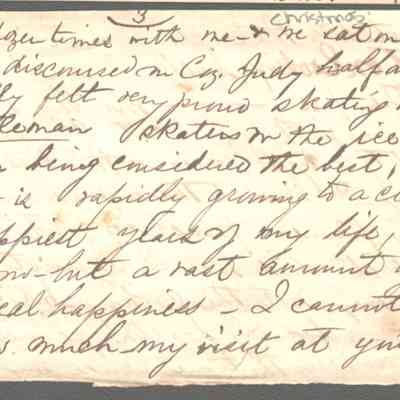 3
Christmas
ozen times with me - & we sat on
discoursed on Coz. Judy half a
ly felt very proud skating
leman skaters on the ice
being considered the best,
is rapidly growing to a c
ppiest years of my life,
no - but a vast amount
eal happiness - I cannot
s much my visit at you